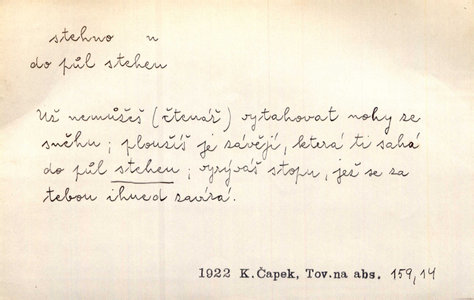 stehno n
do půl stehen
Už nemůžeš (čtenář) vytahovat nohy ze
sněhu; ploužíš je závějí, která ti sahá
do půl stehen; vyrýváš stopu, jež se za
tebou ihned zavírá.
1922 K.Čapek, Tov.na abs. 159,14